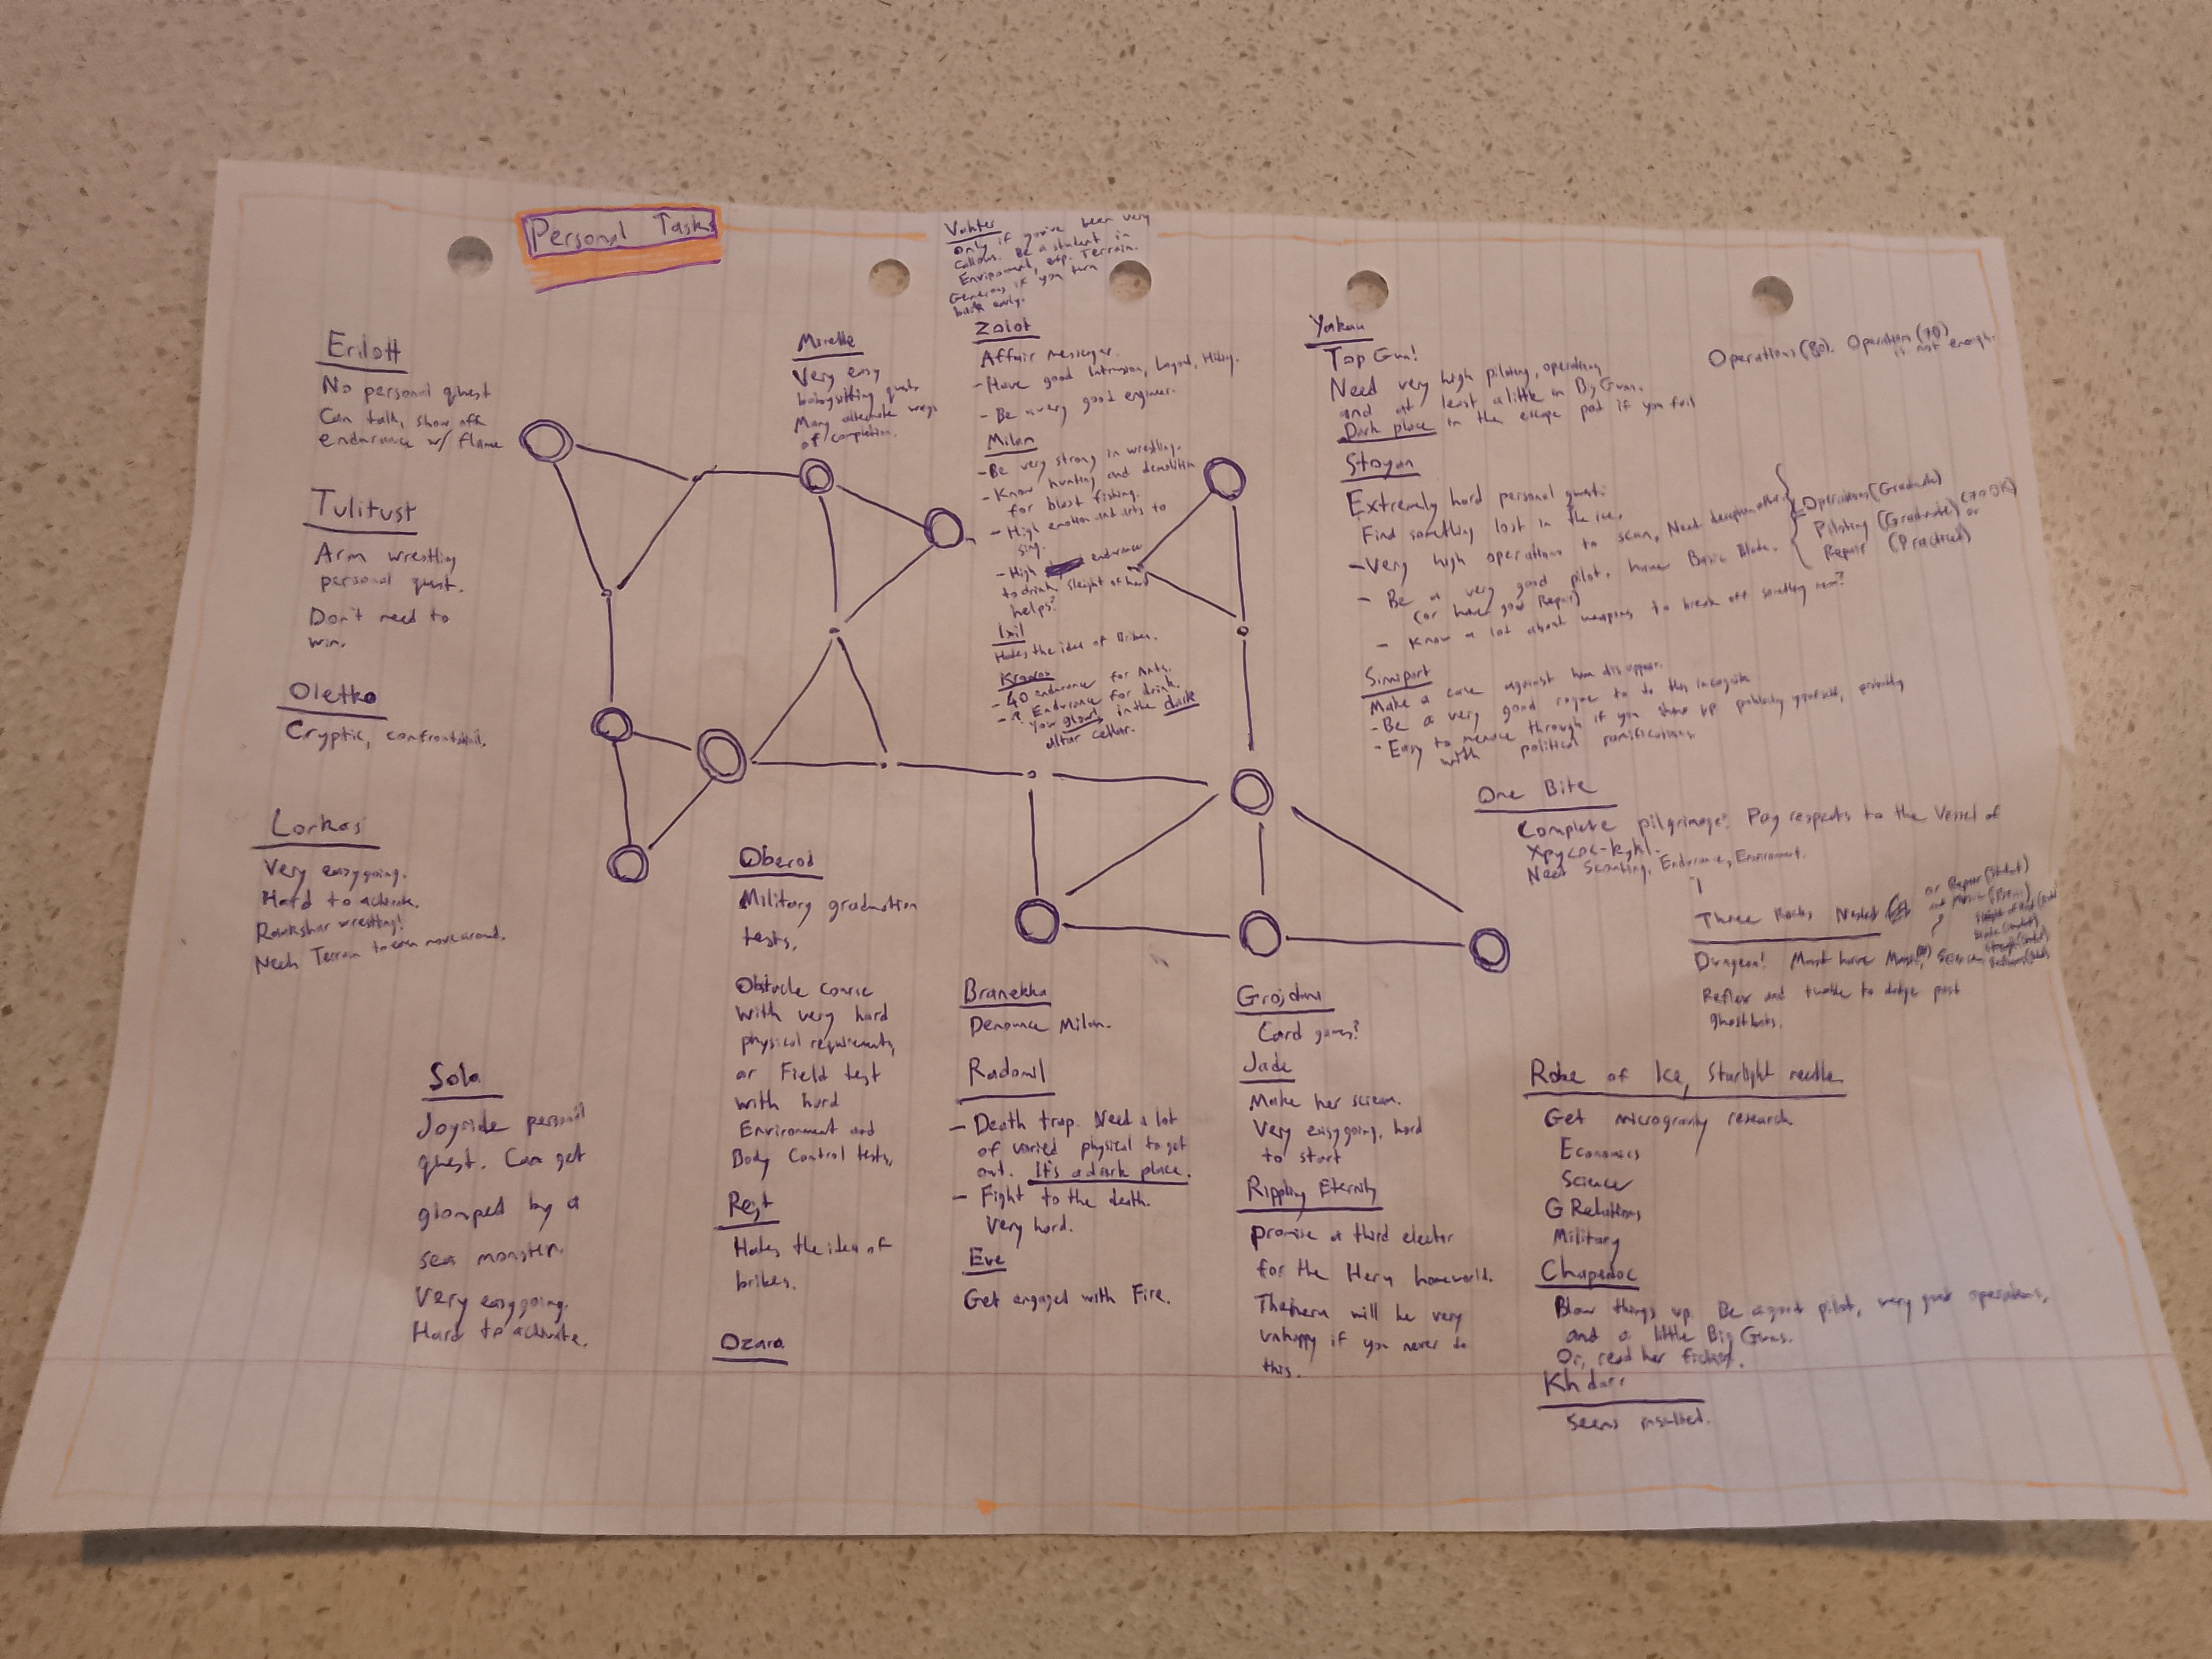 Personal Tasks
Erilott
No personal quest
Can talk, show off
endurance w/ flame
Tulitust
Arm wrestling
personal quest.
Don't need to
win.
Oletko
Cryptic, confrontational.
Lorkas
Very easygoing.
Hard to activate.
wrestling!
Need Terrain to even move around.
Sola
Joyride personal
quest. Can get
glomped by a
sea monster.
Very easygoing.
Hard to activate.
Mirelle
Very easy
babysitting quest.
Many alternate ways
of completion.
Oberod
Military graduation
tests.
Obstacle course
with very hard
physical requirements,
or Field test
with hard
Environment and
Body Control tests.
Rest
Hates the idea of
bribes.
Ozara
only if you've been very
callous. Be a student in
Environment, esp. Terrain.
Generous if you turn
back early.
Zolot
Affair messenger.
- Have good Intrusion,
- Be a very good engineer.
Milan
- Be very strong in wrestling.
- Know hunting and demolition
for blast fishing.
- High emotion and arts to
sing.
- High endurance
to drink, sleight of hand
helps?
Ixil
Hates the idea of Bribes.
- 40 endurance for Ants.
- ? Endurance for drink.
You glow in the dark
altar cellar.
Branekka
Denounce Milan.
Radomil
- Death trap. Need a lot
of varied physical to get
out. It's a dark place.
- Fight to the death.
Very hard.
Eve
Get engaged with Fire.
Grojdan
Card games?
Jade
Make her scream.
Very easygoing, hard
to start
Rippling Eternity
promise a third elector
for the Heru homeworld.
The heru will be very
unhappy if you never do
this.
Yakau
Top Gun!
Need very high piloting, operations
and at least a little in Big Guns.
Dark place in the escape pod if you fail
Operations (80). Operations (70)
is not enough.
Stoyan
Extremely hard personal quest.
Find something lost in the ice.
- Very high operations to scan, Need
- Be a very good pilot, have Basic Blade.
(or have good Repair)
- Know a lot about weapons to break off something more?
Operations (Graduate)
Piloting (Graduate) or
Repair (Practiced)
Simiport
Make a case against him disappear.
- Be a very good rogue to do this incognito
- Easy to menace through if you show up publicly yourself, probably
with political ramifications
One Bite
Complete pilgrimage? Pay respects to the Vessel of
Need Scouting, Endurance, Environment.
Three Rocks Nested
Dungeon! Must have
Reflex and tumble to dodge past
ghostbats.
Robe of Ice, Starlight needle
Get microgravity research
Economics
Science
G Relations
Military
Chapedoc
Blow things up. Be a good pilot, very good operations,
and a little Big Guns.
Or, read her fiction.
Khdarr
Seems insulted.